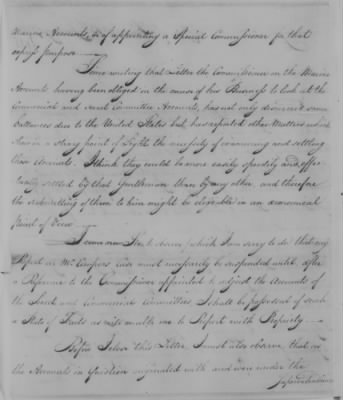 Marine Accounts, or of appointing a Special Commissioner for that
express purpose —
Since writing that Letter the Commissioner on the Marine
Accounts having been obliged in the course of his Business to look at the
Commercial and Naval Committee Accounts, has not only discovered some
ballances due to the United States but has reported other Matters which
shew in a strong point of Light the necessity of examining and settling
those Accounts. I think they could be more easily speedily and effec
tually settled by that Gentleman than by any other, and therefore
the submitting of them to him might be eligible in an œconomical
point of View —
I cannot but observe, which I am sorry to do that my
Report on Mr. Coopers case must necessarily be suspended until, after
a Reference to the Commissioner appointed to adjust the Accounts of
the Secret and Commercial Committees, I shall be possessed of such
a State of Facts as will enable me to Report with Propriety —
Before I close this Letter I must also observe, that as
the Accounts in Question originated with and were under the